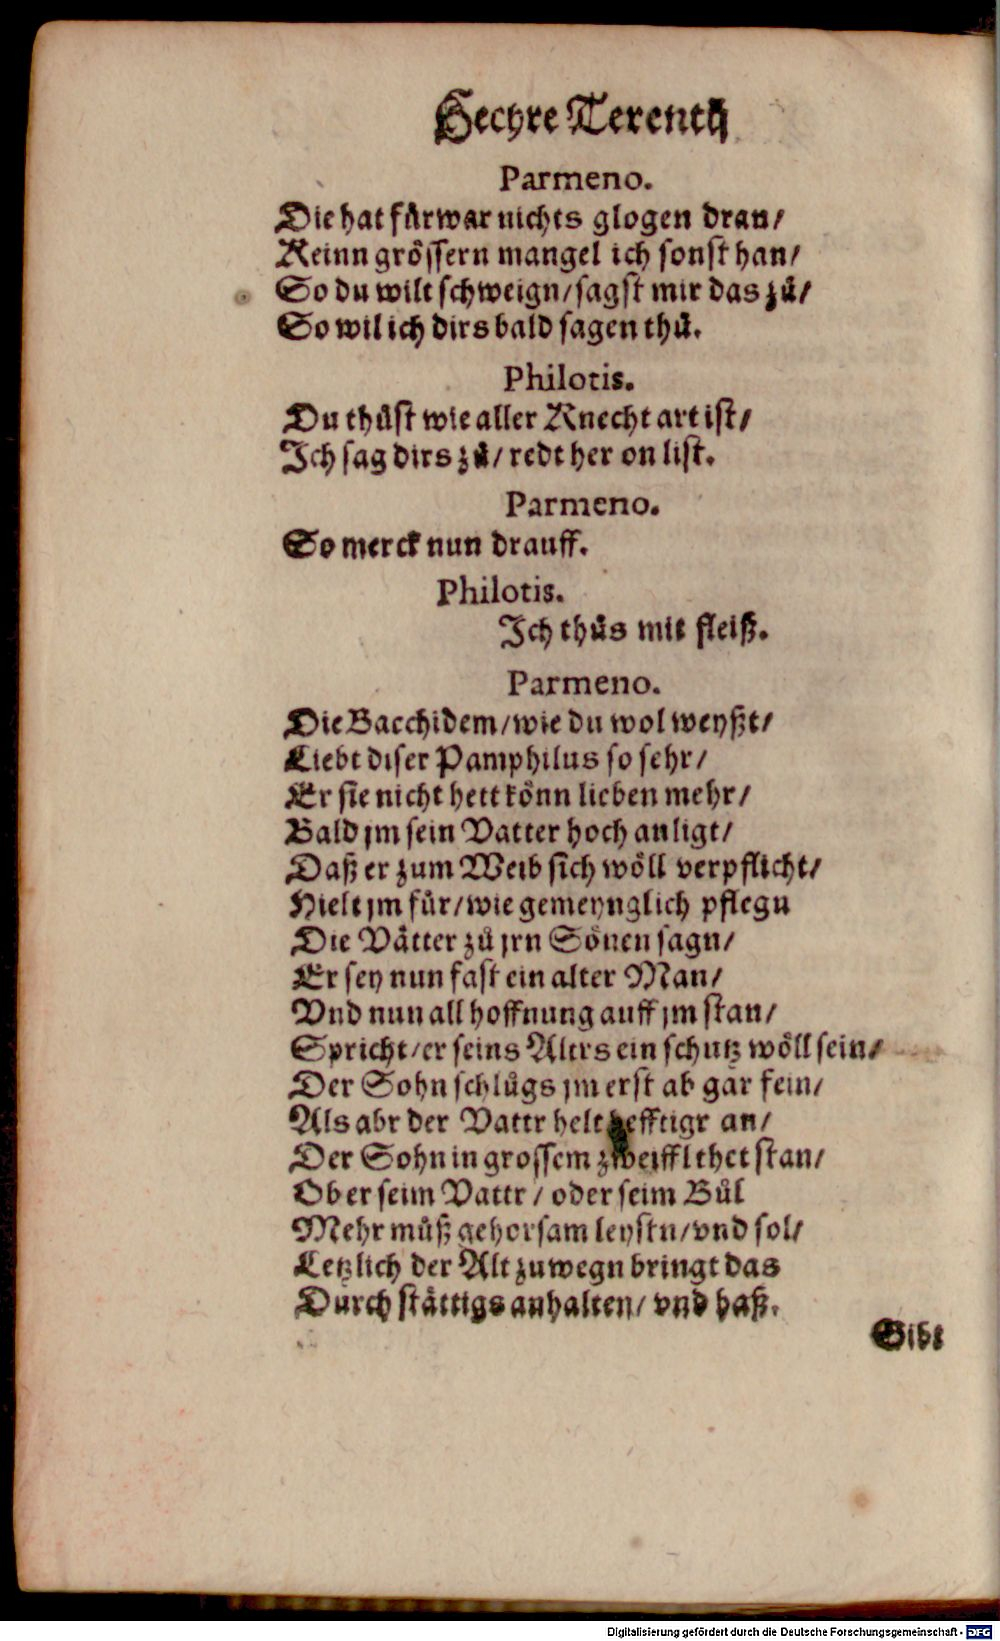 Hecyre Terentij
Parmeno.
Die hat fürwar nichts glogen dran/
Keinn grössern mangel ich sonst han/
So du wilt schweign/sagst mir das zů/
So wil ich dirs bald sagen thů.
Philotis.
Du thůst wie aller Knecht art ist/
Ich sag dirs zů/ redt her on list.
Parmeno.
So merck nun drauff.
Philotis.
Ich thůs mit fleiß.
Parmeno.
Die Bacchidem/wie du wol weyßt/
Liebt diser Pamphilus so sehr/
Er sie nicht hett könn lieben mehr/
Bald jm sein Vatter hoch anligt/
Daß er zum Weib sich wöll verpflicht/
Hielt jm für/wie gemeynglich pflegn
Die Vätter zů jrn Sönen sagn/
Er sey nun fast ein alter Man/
Vnd nun all hoffnung auff jm stan/
Spricht/er seins Alters ein schutz wöll sein/
Der Sohn schlůgs jm erst ab gar fein/
Als abr der Vattr helt hefftigr an/
Der Sohn in grossem zweiffl thet stan/
Ob er seim Vattr / oder seim Bůl
Mehr můß gehorsam leystn/vnd sol/
Letzlich der Alt zuwegn bringt das
Durch stättigs anhalten/ vnd haß.
Gibt
Digitalisierung gefördert durch die Deutsche Forschungsgemeinschaft - DFG